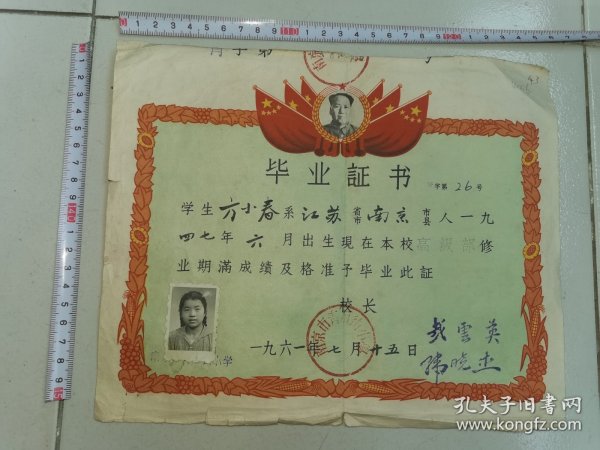 字第
毕业証书
字第 26 号
学生 方小春 系 江苏 省市 南京 市县 人一九
四七年 六 月出生現在本校 高级部 修
业期滿成績及格准予毕业此証
校长
戎雲英
小学
一九六一年七月廿五日
孔夫子旧书网
www.kongfz.com